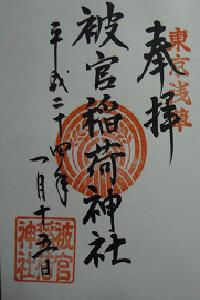 東京浅草
奉拝
被官稲荷神社
平成二十四年
一月十五日
被官
稲荷
神社